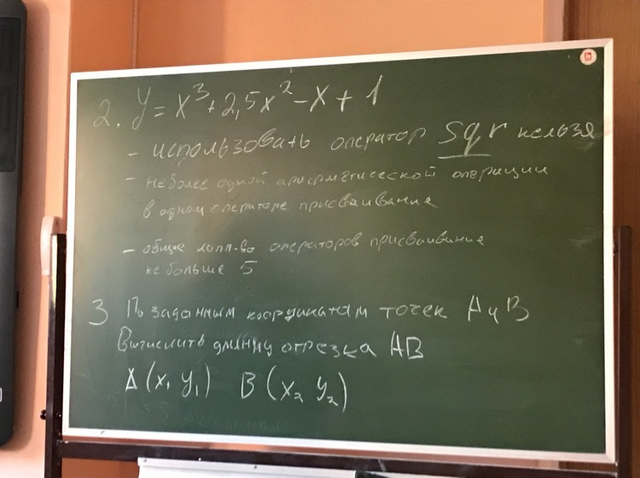 2. y = x³ + 2,5x² - x + 1
- использовать оператор sqr нельзя
- не более одной арифметической операции
в одном операторе присваивание
- общее колл-во операторов присваивание
не больше 5
3 По заданным координатам точек A и B
Вычислить длину отрезка AB
A (x₁ y₁) B (x₂ y₂)